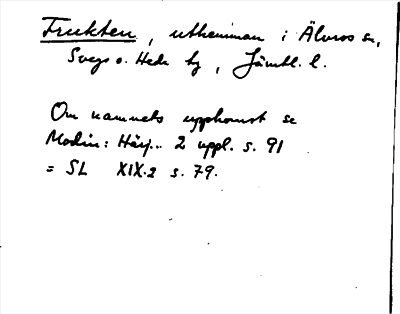 Frukten, uthemman i Älvros sn,
Svegs o. Hede tg, Jämtl. l.
Om namnets uppkomst se
Modin: Härj.. 2 uppl. s. 91
= SL XIX.2 s. 79.